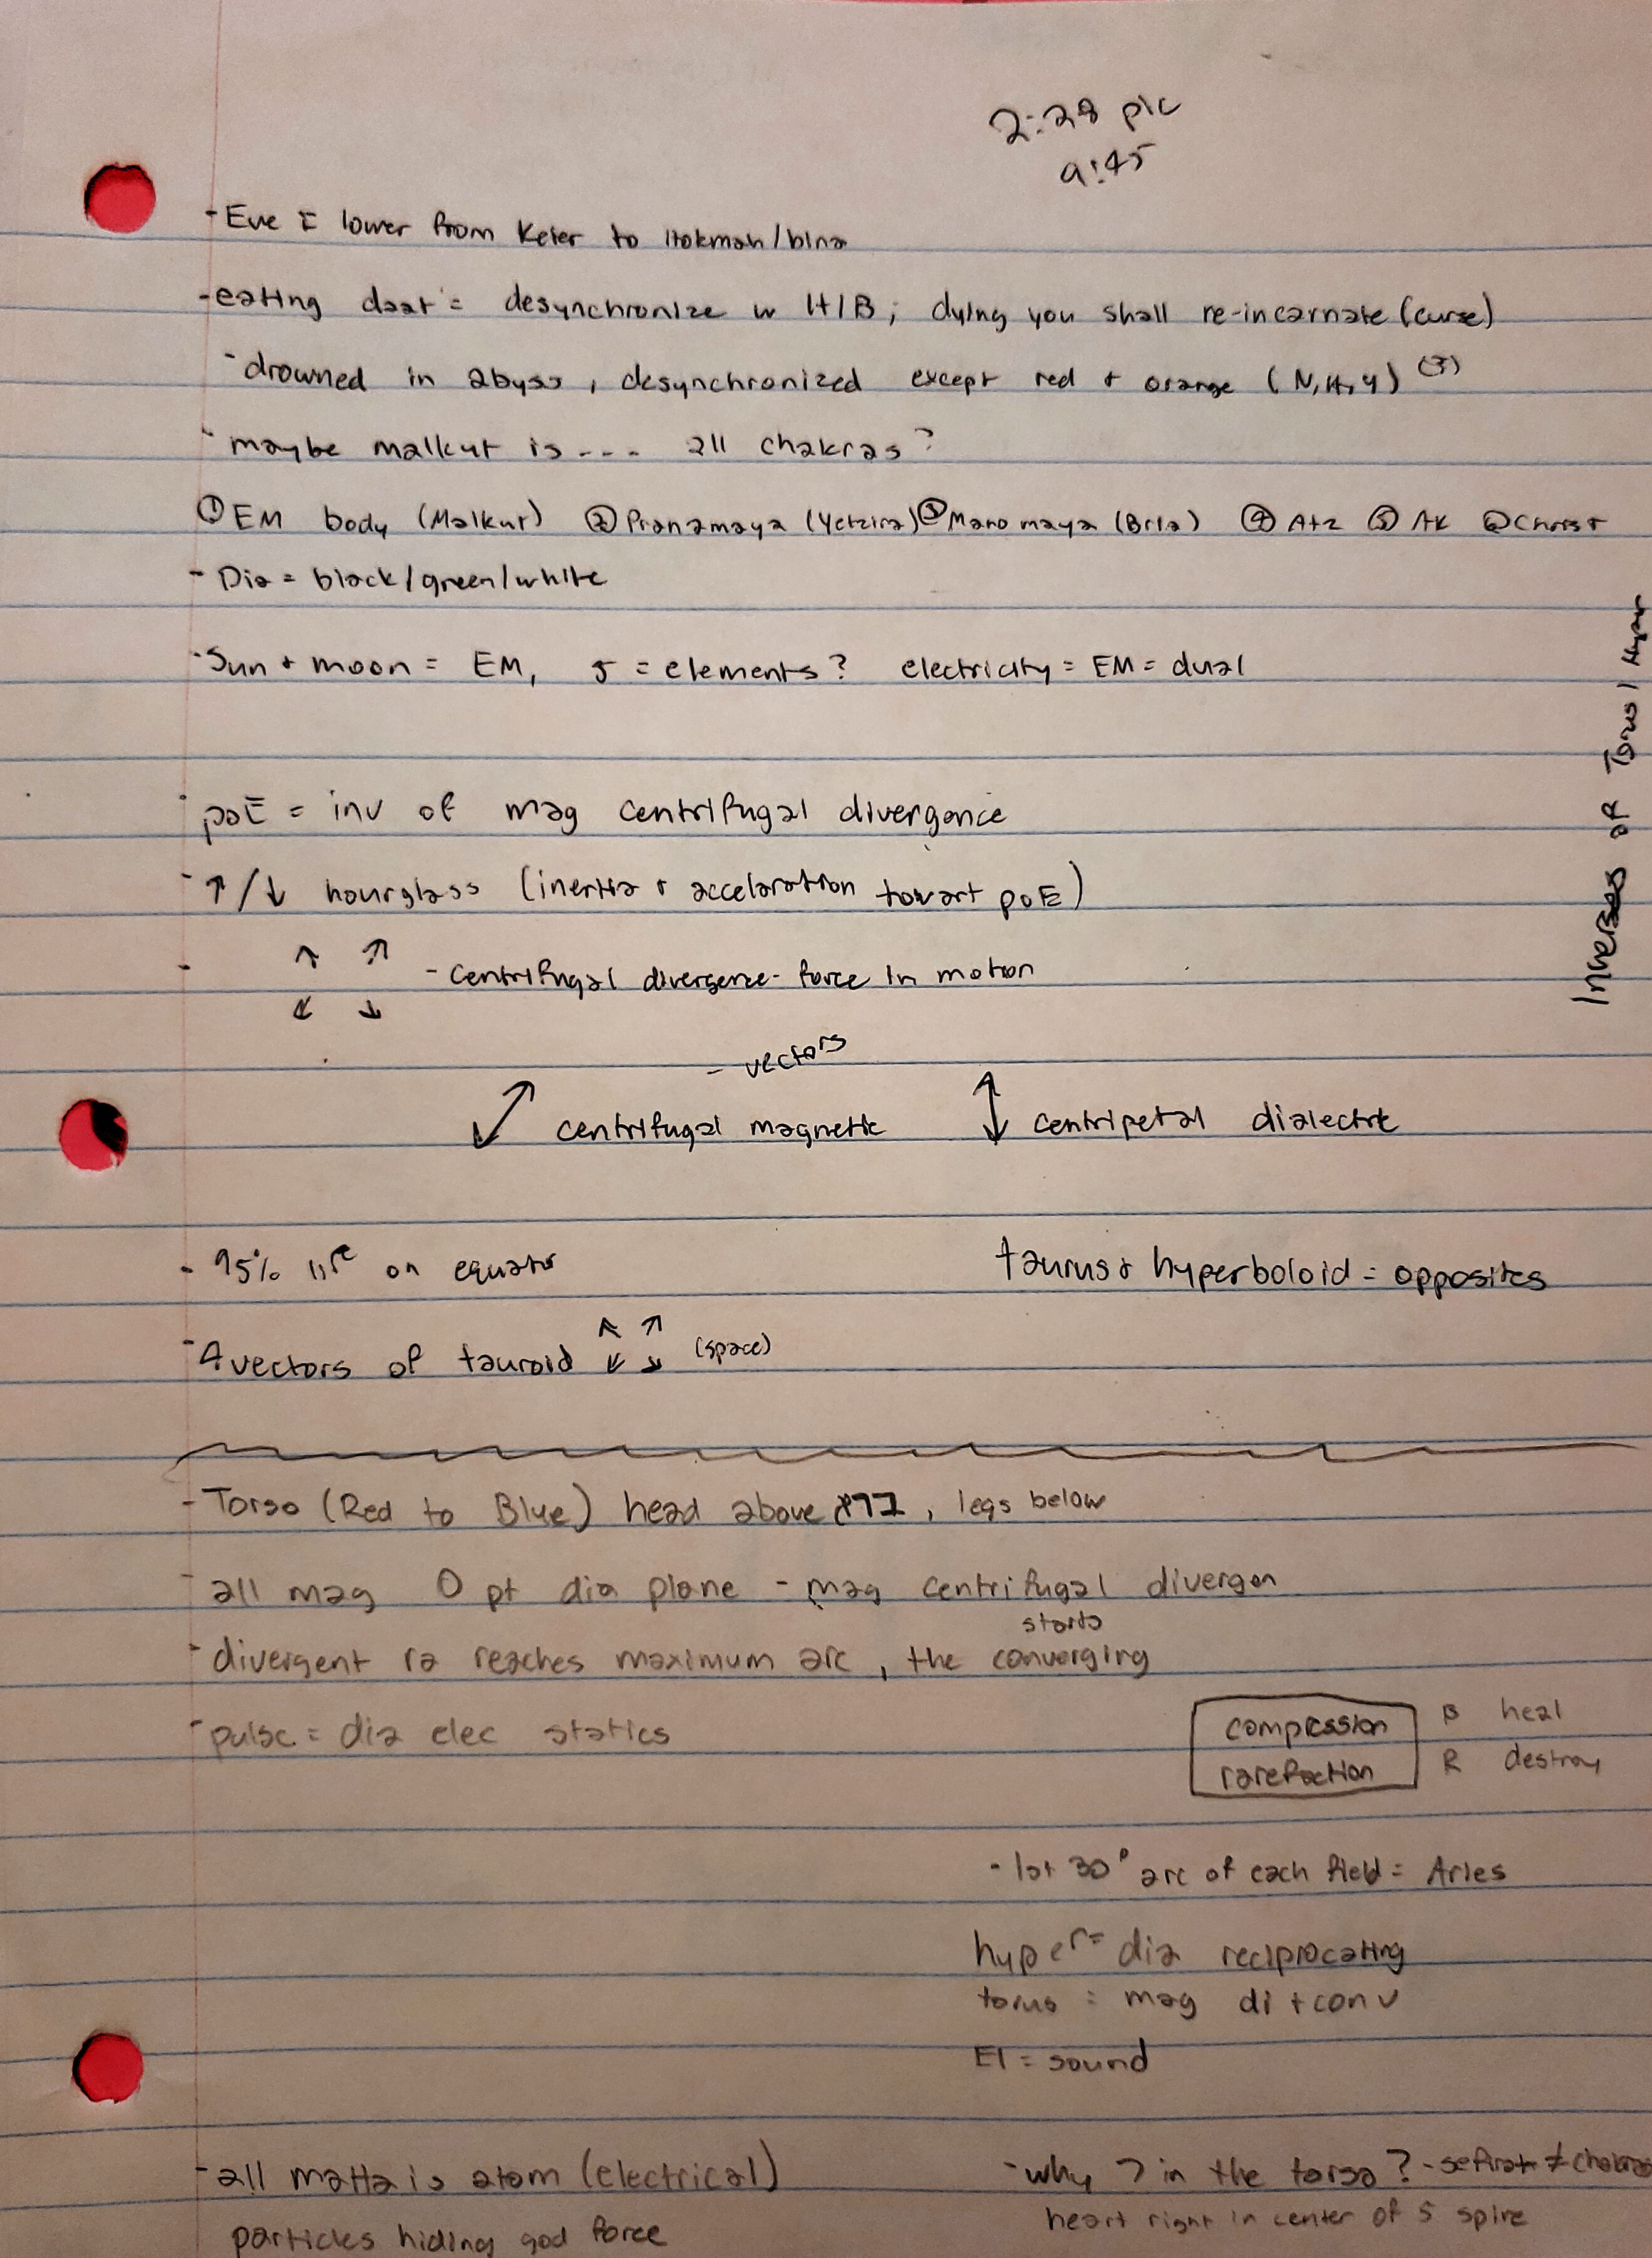 2:28 pic
9:45
- Eve = lower from Keter to Hokmah/bina
- eating daat = desynchronize w H/B; dying you shall re-incarnate (curse)
- drowned in abyss, desynchronized except red + orange (N, H, Y) (?)
- maybe malkut is --- all chakras?
① EM body (Malkut) ② Pranamaya (Yetzira) ③ Manomaya (Bria) ④ Atz ⑤ AK ⑥ Christ
- Dia = black/green/white
- Sun + moon = EM, 5 = elements? electricity = EM = dual
- poE = inv of mag centrifugal divergence
- ↑/↓ hourglass (inertia + accelaration towart poE)
- ↖ ↗ - centrifugal divergence - force in motion
↙ ↘
- vectors
↗↙ centrifugal magnetic ↕ centripetal dialectrc
- 95% life on equator
taurus + hyperboloid = opposites
- 4 vectors of tauroid ↖ ↗ ↙ ↘ (space)
Inverses of Torus/Hyper
- Torso (Red to Blue) head above, legs below
- all mag 0 pt dia plane - mag centrifugal divergen
- divergent ra reaches maximum arc, the starts converging
- pulse = dia elec statics
compression B heal
rarefaction R destroy
- 1st 30° arc of each field = Aries
hyper = dia reciprocating
torus = mag di + conv
El = sound
- all matta is atom (electrical)
particles hiding god force
- why 7 in the torso? - sefirot ≠ chakras
heart right in center of 5 spire